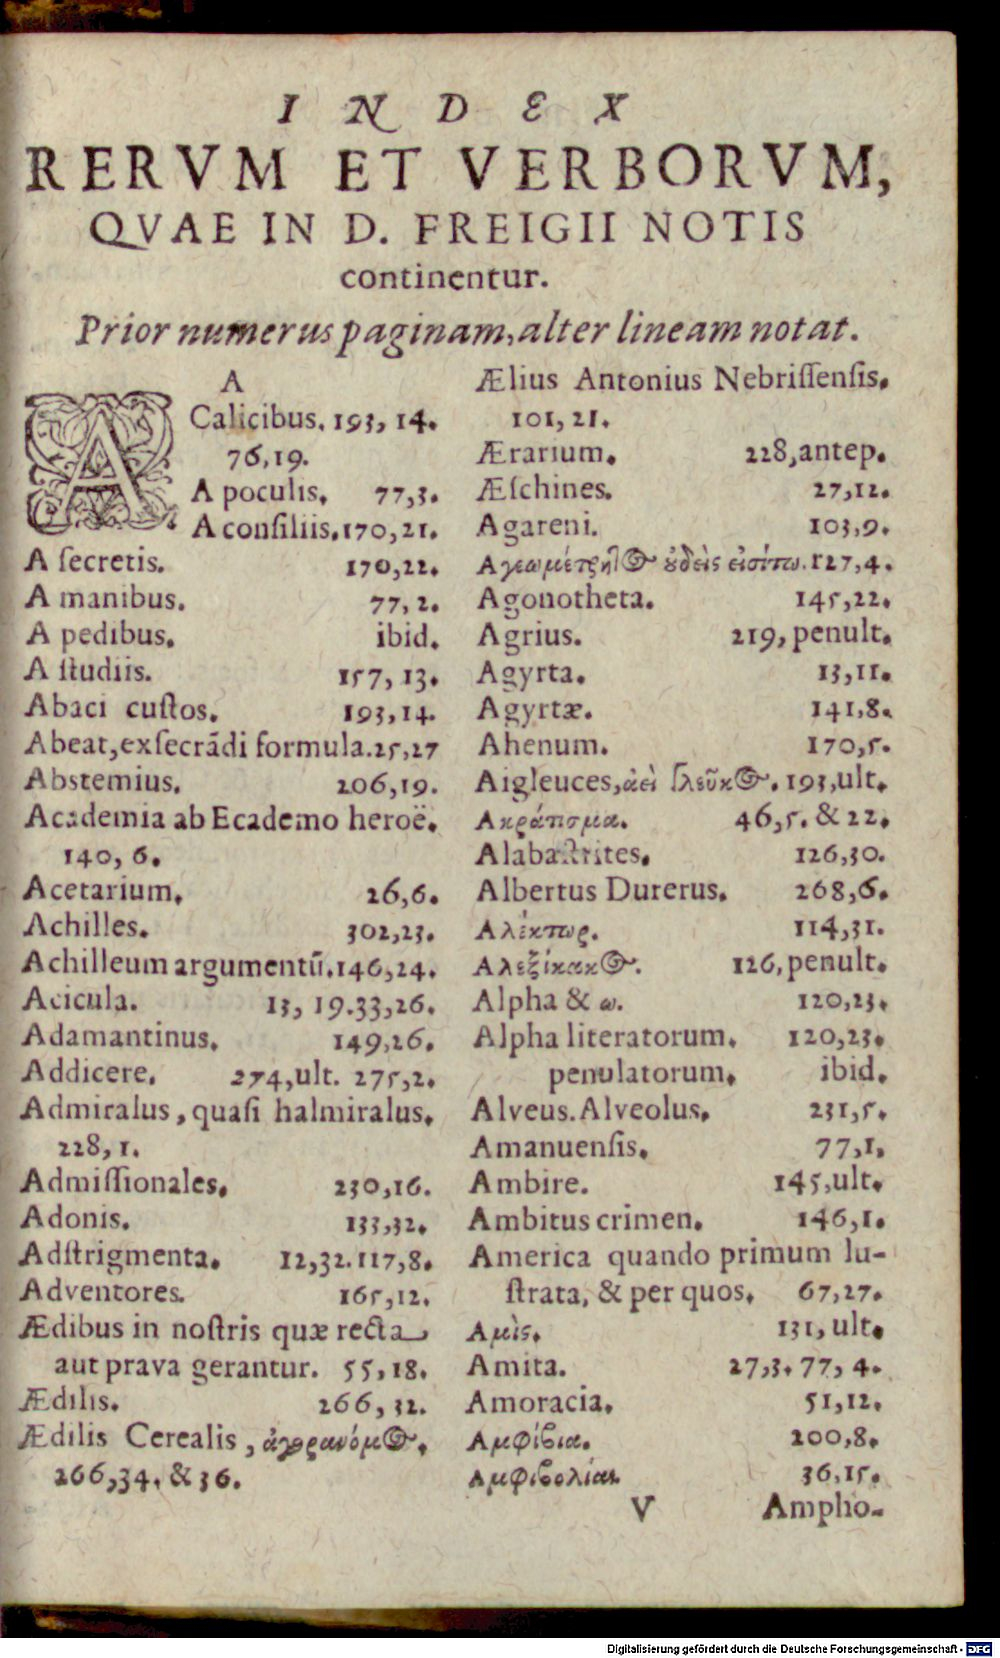 INDEX
RERVM ET VERBORVM,
QVAE IN D. FREIGII NOTIS
continentur.
Prior numerus paginam, alter lineam notat.
A
A Calicibus. 193, 14.
76,19.
A poculis. 77,3.
A consiliis. 170,21.
A secretis. 170,22.
A manibus. 77,2.
A pedibus. ibid.
A studiis. 157,13.
Abaci custos. 193,14.
Abeat, exsecrãdi formula. 25,27
Abstemius. 206,19.
Academia ab Ecademo heroë.
140, 6.
Acetarium. 26,6.
Achilles. 302,23.
Achilleum argumentũ. 146,24.
Acicula. 13, 19. 33,26.
Adamantinus. 149,26.
Addicere. 274,ult. 275,2.
Admiralus, quasi halmiralus.
228, 1.
Admissionales. 230,16.
Adonis. 133,32.
Adstrigmenta. 12,32. 117,8.
Adventores. 165,12.
Ædibus in nostris quæ recta
aut prava gerantur. 55,18.
Ædilis. 266, 32.
Ædilis Cerealis, ἀγορανόμος.
266,34. & 36.
Ælius Antonius Nebrissensis.
101, 21.
Ærarium. 228,antep.
Æschines. 27,12.
Agareni. 103,9.
Αγεωμέτρητος οὐδεὶς εἰσίτω. 127,4.
Agonotheta. 145,22.
Agrius. 219, penult.
Agyrta. 13,11.
Agyrtæ. 141,8.
Ahenum. 170,5.
Aigleuces, ἀεὶ γλεῦκος. 193,ult.
Ακράτισμα. 46,5. & 22.
Alabastrites. 126,30.
Albertus Durerus. 268,6.
Αλέκτωρ. 114,31.
Αλεξίκακος. 126,penult.
Alpha & ω. 120,23.
Alpha literatorum. 120,23.
penulatorum. ibid.
Alveus. Alveolus. 231,5.
Amanuensis. 77,1.
Ambire. 145,ult.
Ambitus crimen. 146,1.
America quando primum lu-
strata, & per quos. 67,27.
Αμὶς. 131, ult.
Amita. 27,3. 77, 4.
Amoracia. 51,12.
Αμφίβια. 200,8.
Αμφιβολίαι 36,15.
V Ampho-
Digitalisierung gefördert durch die Deutsche Forschungsgemeinschaft - DFG